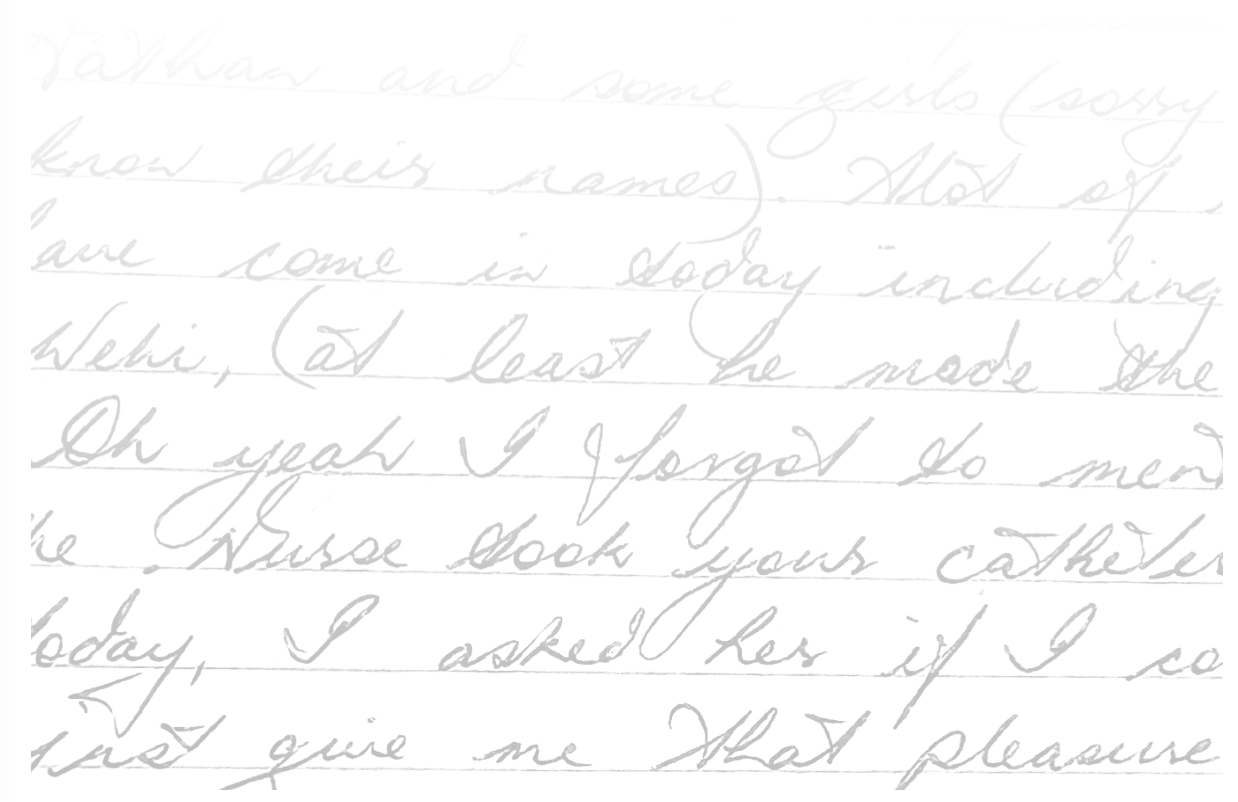 Nathan and some girls (sorry
know their names). Alot of
have come in today including
Wehi, (at least he made the
Oh yeah I forgot to ment
he Nurse took your catheter
today, I asked her if I co
just give me that pleasure